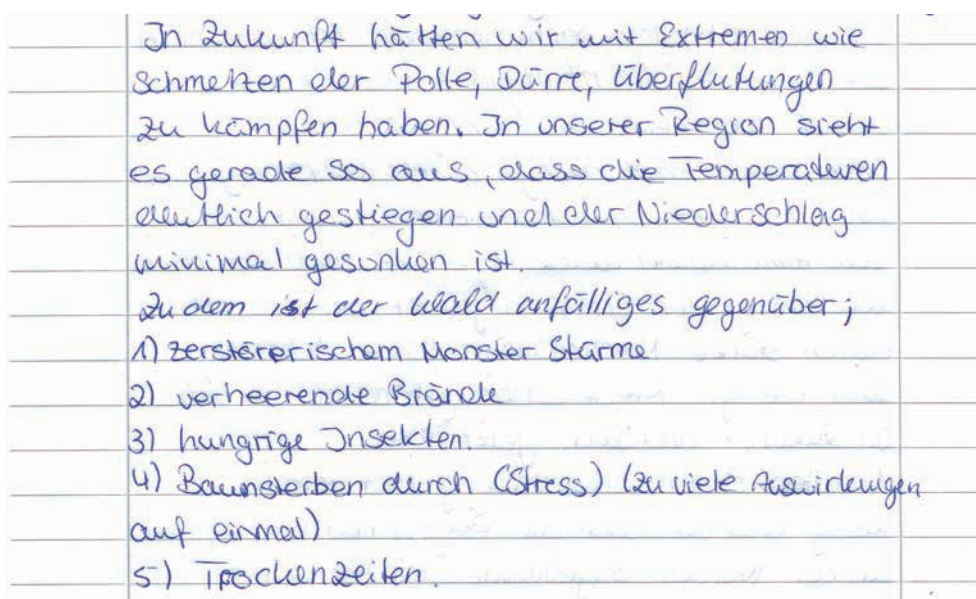 In Zukunft hätten wir mit Extremen wie
schmelzen der Polle, Dürre, Überflutungen
zu kämpfen haben. In unserer Region sieht
es gerade so aus, dass die Temperaturen
deutlich gestiegen und der Niederschlag
minimal gesunken ist.
Zu dem ist der Wald anfälliges gegenüber;
1) zerstörerischem Monster Stürme
2) verheerende Brände
3) hungrige Insekten.
4) Baumsterben durch (Stress) (zu viele Auswirkungen
auf einmal)
5) Trockenzeiten.